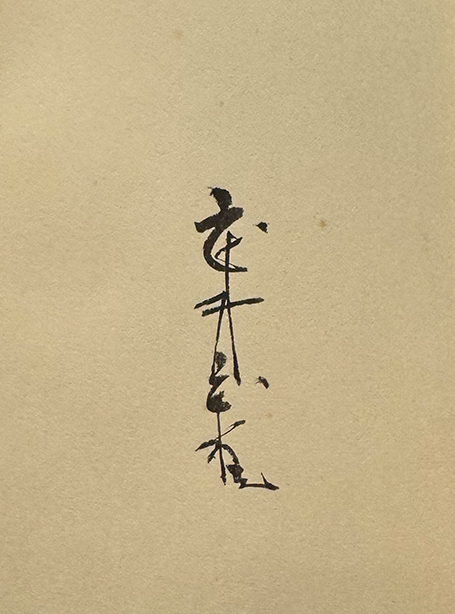 武井武雄